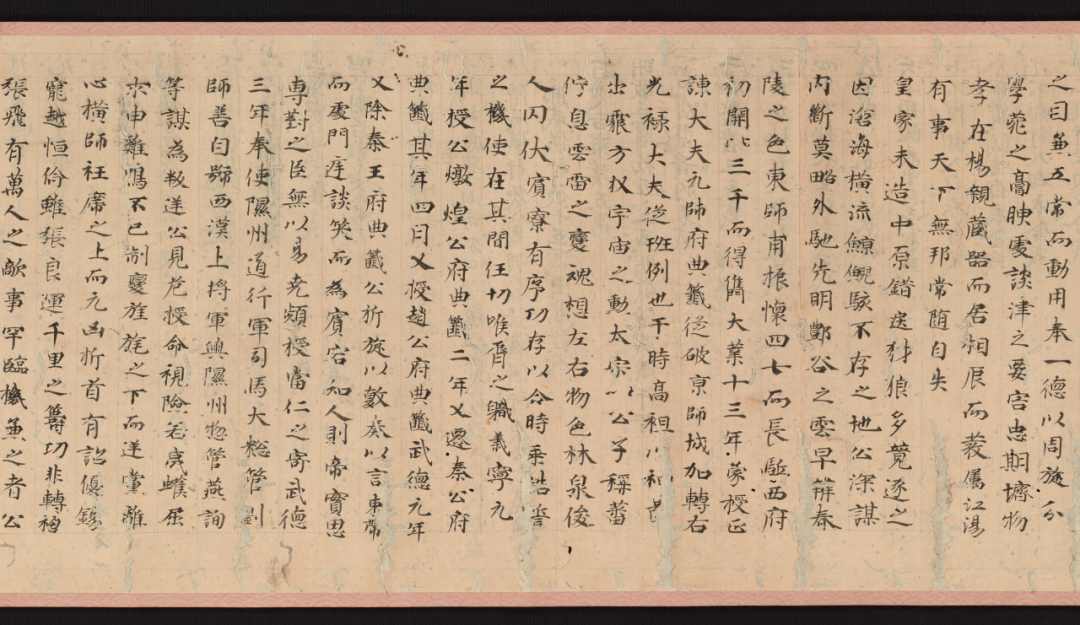 之目兼五常而動用奉一德以周旋分
學苑之高談津之要害忠期壞物
孝在楊親藏器而居相辰而發属江湯
有事天下無邦常随自失
皇家未造中原錯逐豺狼多競逐之
因滄海橫流鯨鯢駭不存之地公深謀
内断莫略外馳先明酆谷之雲早辨秦
陵之色東師甫振懷四七而長駈西府
初開三千而得儁大業十三年蒙授正
諌大夫元帥府典籤従破京師城加轉右
光禄大夫従班例也于時高祖
出震方扠宇宙之勳太宗公子稱蕃
佇息雲雷之變魂想左右物色林泉俊
人閃伏賓寮有序功存以令時乗誥誓
之機使在其間任切喉脣之職義寧元
年授公燉煌公府典籤二年又遷秦公府
典籤其年四月又授趙公府典籤武德元年
又除秦王府典籤公折旋以敷奏以言東帶
而處門庭談笑而為賓客知人則帝實思
專對之臣無以易堯頻授當仁之寄武德
三年奉使隰州道行軍司馬大惣管劉
師善自號西漢上将軍與隰州惣管燕詢
等謀為叛逆公見危授命視險若夷蠖屈
求申難鳴不已制變旌旄之下而逆黨離
心橫師衽席之上而元凶折首有詔優錫
寵越恒倫雖張良運千里之籌功非轉禍
張飛有萬人之敵事罕臨機兼之者公